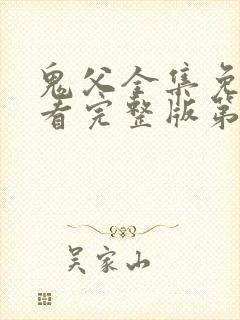 鬼父全集免
看完整版第
吴家山